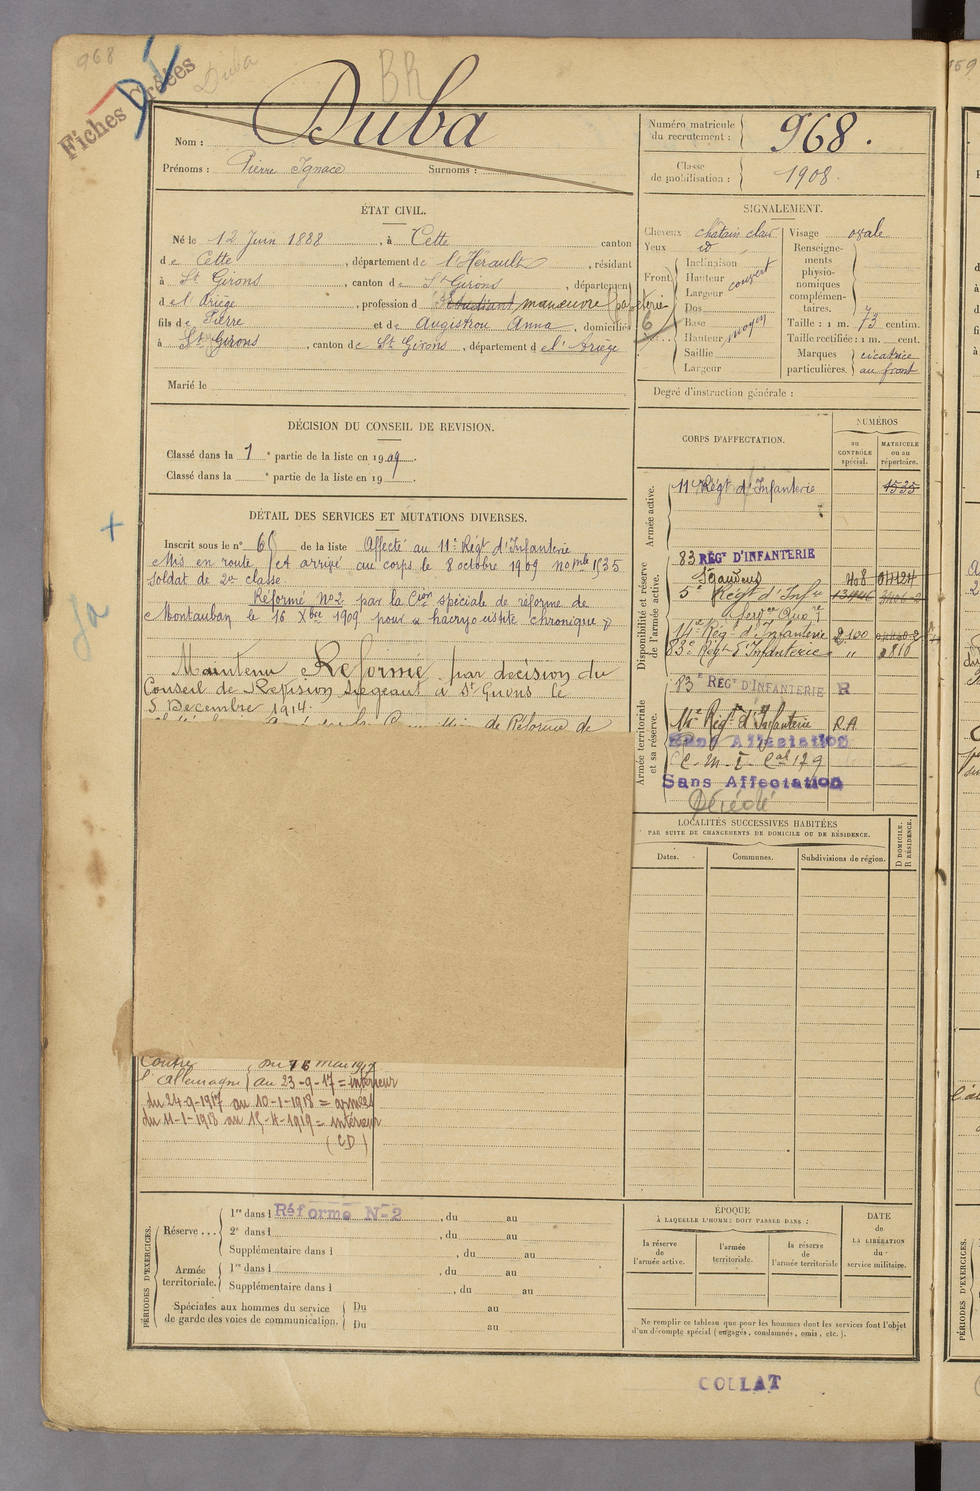 968
Fiches Créées
Duba
BR
Nom : Duba
Prénoms : Pierre Ignace Surnoms :
Numéro matricule du recrutement : 968.
Classe de mobilisation : 1908
ÉTAT CIVIL.
Né le 12 Juin 1888, à Cette canton
de Cette, département de l'Hérault, résidant
à St Girons, canton de St Girons, département
de l'Ariège, profession d'Etudiant manœuvre papeterie
fils de Pierre et de Augistrou Anna, domiciliés
à St Girons, canton de St Girons, département de l'Ariège
Marié le
SIGNALEMENT.
Cheveux châtain clair
Yeux id
Front Inclinaison
Hauteur couvert
Largeur
Dos
Base
Hauteur moyen
Saillie
Largeur
Visage ovale
Renseignements physionomiques complémentaires.
Taille : 1 m. 73 centim.
Taille rectifiée : 1 m. cent.
Marques particulières. cicatrice au front
Degré d'instruction générale :
DÉCISION DU CONSEIL DE REVISION.
Classé dans la 1e partie de la liste en 1909.
Classé dans la e partie de la liste en 19
DÉTAIL DES SERVICES ET MUTATIONS DIVERSES.
Inscrit sous le n° 68 de la liste Affecté au 11e Régt d'Infanterie
Mis en route et arrivé au corps le 8 octobre 1909 no mle 1535
Soldat de 2e classe.
Réformé No2 par la Cion spéciale de réforme de
Montauban le 16 Xbre 1909 pour « dacryocistite chronique »
Maintenu Réformé par décision du
Conseil de Révision siégeant à St Girons le
5 Décembre 1914.
de Réforme de
CORPS D'AFFECTATION.
NUMÉROS
au CONTRÔLE spécial.
MATRICULE ou au répertoire.
Armée active.
11e Régt d'Infanterie 1535
Disponibilité et réserve de l'armée active.
83 RÉGT D'INFANTERIE
St Gaudens
5e Régt d'Infie
14e Régt d'Infanterie 2.100
83e Régt d'Infanterie " 2816
Armée territoriale et sa réserve.
83e RÉGT D'INFANTERIE R
14e Régt d'Infanterie R.A.
Sans Affectation
C-M-I- Cat 179
Sans Affectation
Décédé
LOCALITÉS SUCCESSIVES HABITÉES
PAR SUITE DE CHANGEMENTS DE DOMICILE OU DE RÉSIDENCE.
Dates. Communes. Subdivisions de région. D DOMICILE. R RÉSIDENCE.
Contre du 16 mai 1917
l'Allemagne au 23-9-17 = intérieur
du 24-9-1917 au 10-1-1918 = armées
du 11-1-1918 au 15-4-1919 = intérieur
(CD)
PÉRIODES D'EXERCICES.
Réserve... 1re dans l Réforme N-2, du au
2e dans l , du au
Supplémentaire dans l , du au
Armée territoriale. 1re dans l , du au
Supplémentaire dans l , du au
Spéciales aux hommes du service de garde des voies de communication. Du au
Du au
ÉPOQUE
À LAQUELLE L'HOMME DOIT PASSER DANS :
la réserve de l'armée active.
l'armée territoriale.
la réserve de l'armée territoriale
DATE de LA LIBÉRATION du service militaire.
Ne remplir ce tableau que pour les hommes dont les services font l'objet
d'un décompte spécial (engagés, condamnés, omis, etc.).
COLLAT